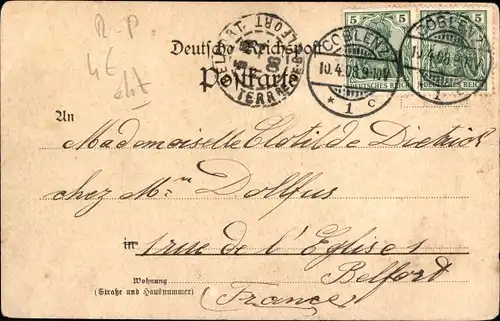 R-P
Deutsche Reichspost
Postkarte
BELFORT
TERRE DE BELFORT
COBLENZ
10.4.08. 9-10V
* 1 c
5 5
DEUTSCHES REICH
COBLENZ
10.4.08. 9-10V
1
An
Mademoiselle Clotilde Dietrich
chez Mr Dollfus
in 1 rue de l'Eglise
Belfort
Wohnung
(Straße und Hausnummer)
(France)